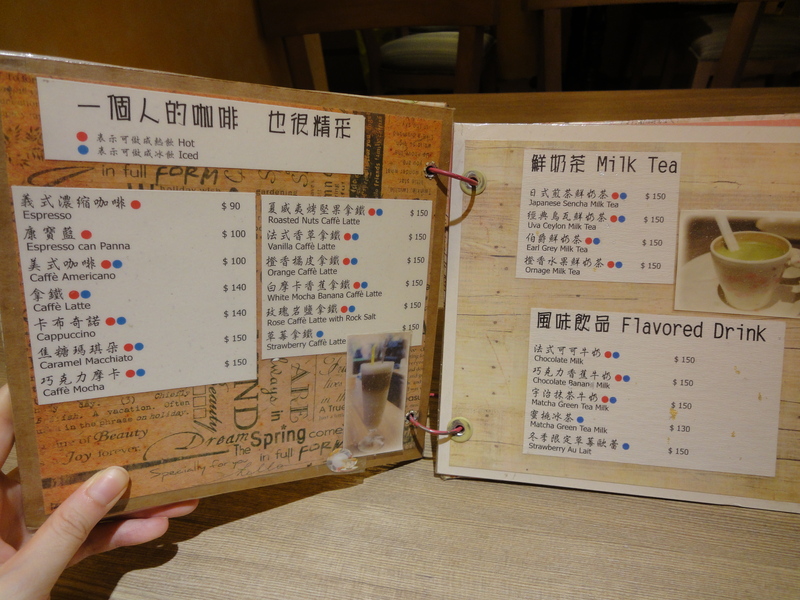 一個人的咖啡 也很精采
表示可做成熱飲 Hot
表示可做成冰飲 Iced
in full FORM
義式濃縮咖啡 $ 90
Espresso
康寶藍 $ 100
Espresso con Panna
美式咖啡 $ 100
Caffè Americano
拿鐵 $ 140
Caffè Latte
卡布奇諾 $ 140
Cappuccino
焦糖瑪琪朵 $ 150
Caramel Macchiato
巧克力摩卡 $ 150
Caffè Mocha
夏威夷烤堅果拿鐵 $ 150
Roasted Nuts Caffè Latte
法式香草拿鐵 $ 150
Vanilla Caffè Latte
橙香橘皮拿鐵 $ 150
Orange Caffè Latte
白摩卡香蕉拿鐵 $ 150
White Mocha Banana Caffè Latte
玫瑰岩鹽拿鐵 $ 150
Rose Caffè Latte with Rock Salt
草莓拿鐵 $ 150
Strawberry Caffè Latte
Beauty
Joy forever
Dream
The Spring come
in full FORM
Specially for you
鮮奶茶 Milk Tea
日式煎茶鮮奶茶 $ 150
Japanese Sencha Milk Tea
經典烏瓦鮮奶茶 $ 150
Uva Ceylon Milk Tea
伯爵鮮奶茶 $ 150
Earl Grey Milk Tea
橙香水果鮮奶茶 $ 150
Ornage Milk Tea
風味飲品 Flavored Drink
法式可可牛奶 $ 150
Chocolate Milk
巧克力香蕉牛奶 $ 150
Chocolate Banana Milk
宇治抹茶牛奶 $ 150
Matcha Green Tea Milk
蜜桃冰茶 $ 130
Matcha Green Tea Milk
冬季限定草莓歐蕾 $ 150
Strawberry Au Lait